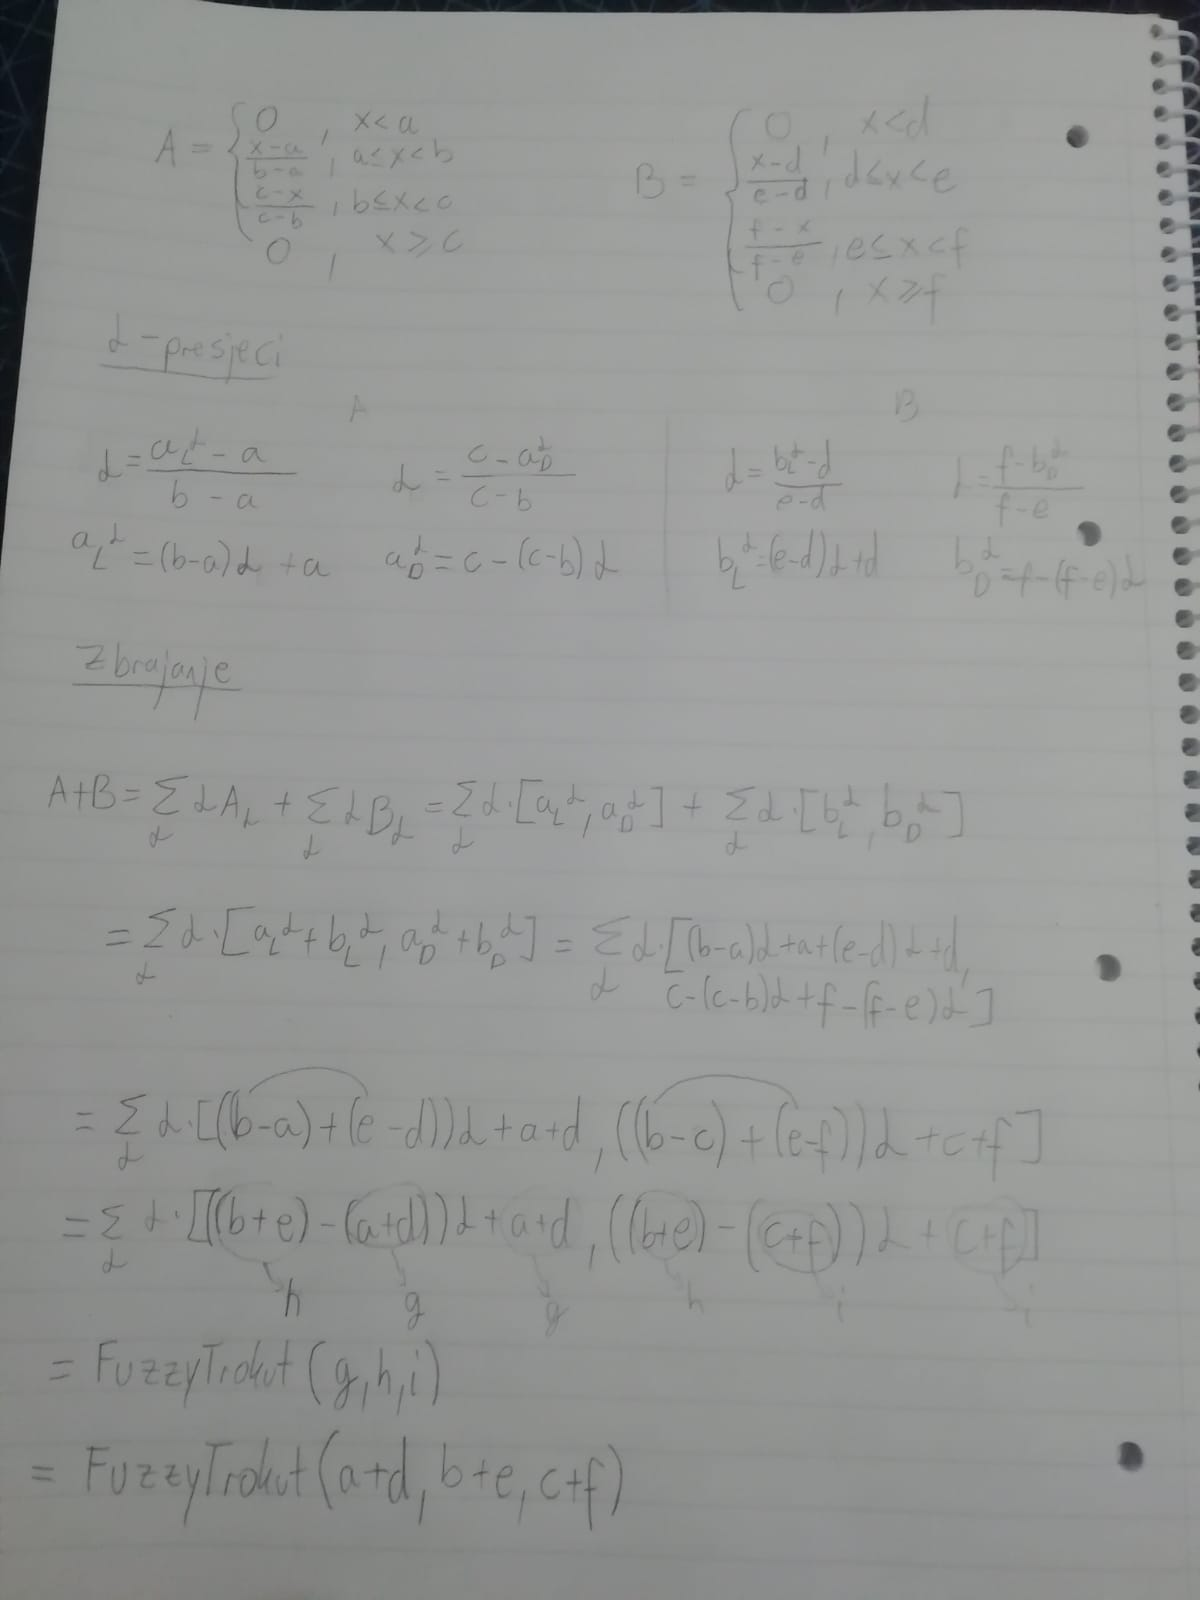 A = { 0 , x<a
(x-a)/(b-a) , a≤x<b
(c-x)/(c-b) , b≤x<c
0 , x≥c
B = { 0 , x<d
(x-d)/(e-d) , d≤x<e
(f-x)/(f-e) , e≤x<f
0 , x≥f
α-presjeci
A
α = (a_L^α - a)/(b - a)
α = (c - a_D^α)/(c - b)
a_L^α = (b-a)α + a
a_D^α = c - (c-b)α
B
α = (b_L^α - d)/(e-d)
α = (f - b_D^α)/(f-e)
b_L^α = (e-d)α + d
b_D^α = f - (f-e)α
Zbrajanje
A+B = Σ_α αA_α + Σ_α αB_α = Σ_α α·[a_L^α, a_D^α] + Σ_α α·[b_L^α, b_D^α]
= Σ_α α·[a_L^α + b_L^α, a_D^α + b_D^α] = Σ_α α·[(b-a)α+a+(e-d)α+d,
c-(c-b)α+f-(f-e)α]
= Σ_α α·[((b-a)+(e-d))α+a+d, ((b-c)+(e-f))α+c+f]
= Σ_α α·[((b+e)-(a+d))α+a+d, ((b+e)-(c+f))α+c+f]
h g g h i i
= FuzzyTrokut(g,h,i)
= FuzzyTrokut(a+d, b+e, c+f)